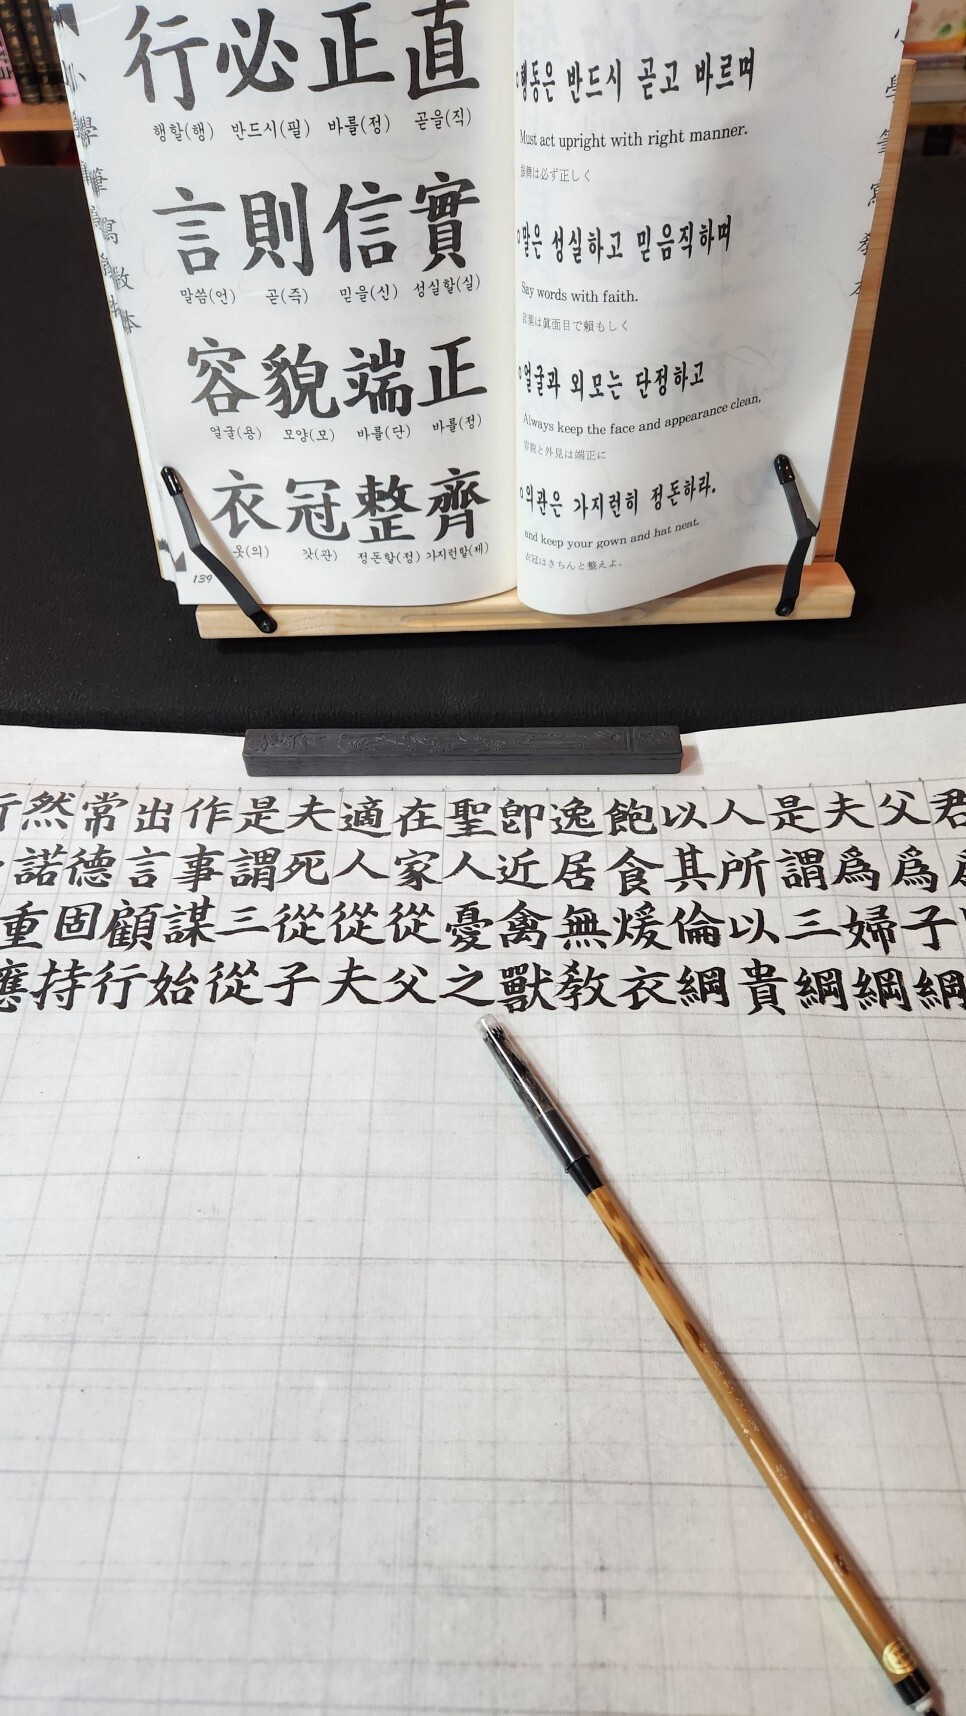 行必正直
행할(행) 반드시(필) 바를(정) 곧을(직)
言則信實
말씀(언) 곧(즉) 믿을(신) 성실할(실)
容貌端正
얼굴(용) 모양(모) 바를(단) 바를(정)
衣冠整齊
옷(의) 갓(관) 정돈할(정) 가지런할(제)
139
행동은 반드시 곧고 바르며
Must act upright with right manner.
振舞は必ず正しく
말은 성실하고 믿음직하며
Say words with faith.
言葉は眞面目で頼もしく
얼굴과 외모는 단정하고
Always keep the face and appearance clean,
容貌と外見は端正に
의관은 가지런히 정돈하라.
and keep your gown and hat neat.
衣冠はきちんと整えよ.
父爲子綱
夫爲婦綱
是謂三綱
人所以貴
以其倫綱
飽食煖衣
逸居無敎
卽近禽獸
聖人憂之
在家從父
適人從夫
夫死從子
是謂三從
作事謀始
出言顧行
常德固持
然諾重應